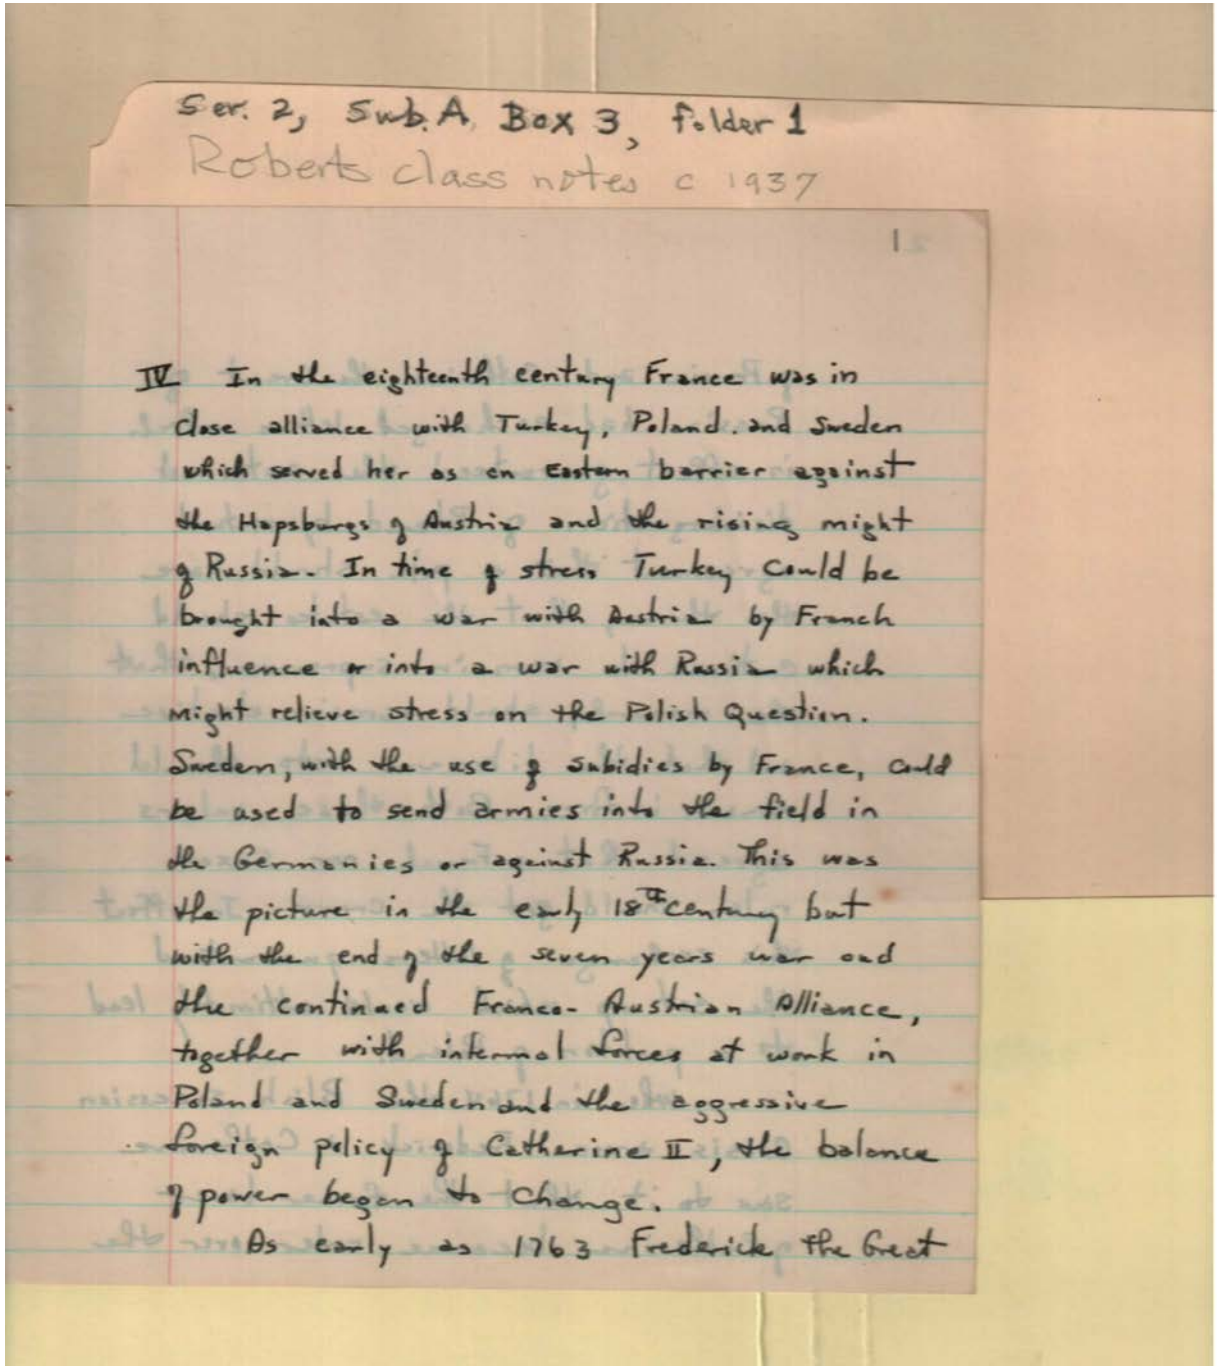 Ser. 2, Sub. A, Box 3, folder 1
Roberts class notes c 1937
1
IV In the eighteenth century France was in
close alliance with Turkey, Poland. and Sweden
which served her as an Eastern barrier against
the Hapsburgs of Austria and the rising might
of Russia. In time of stress Turkey could be
brought into a war with Austria by French
influence or into a war with Russia which
might relieve stress on the Polish Question.
Sweden, with the use of subidies by France, could
be used to send armies into the field in
the Germanies or against Russia. This was
the picture in the early 18th century but
with the end of the seven years war and
the continued Franco-Austrian Alliance,
together with internal forces at work in
Poland and Sweden and the aggressive
foreign policy of Catherine II, the balance
of power began to change.
As early as 1763 Frederick the Great